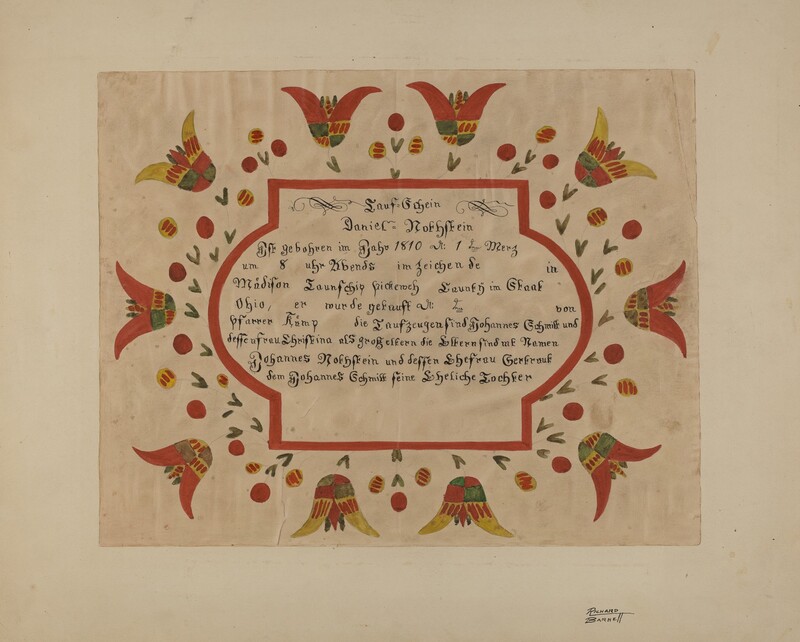 Tauf=Schein
Daniel= Rothstein
Ist gebohren im Jahr 1810 1 Merz
um 8 uhr Abends im zeichen de in
Mådison Taunschip pickeweh Caunty im Staat
Ohio, er wurde getauft von
pfarrer Kåmp die Taufzeugen sind Johannes Schmitt und
dessen frau Christina als großeltern die Eltern sind mt Namen
Johannes Rothstein und dessen Ehefrau Gertraut
dem Johannes Schmitt seine Eheliche Tochter
RICHARD
BARNETT